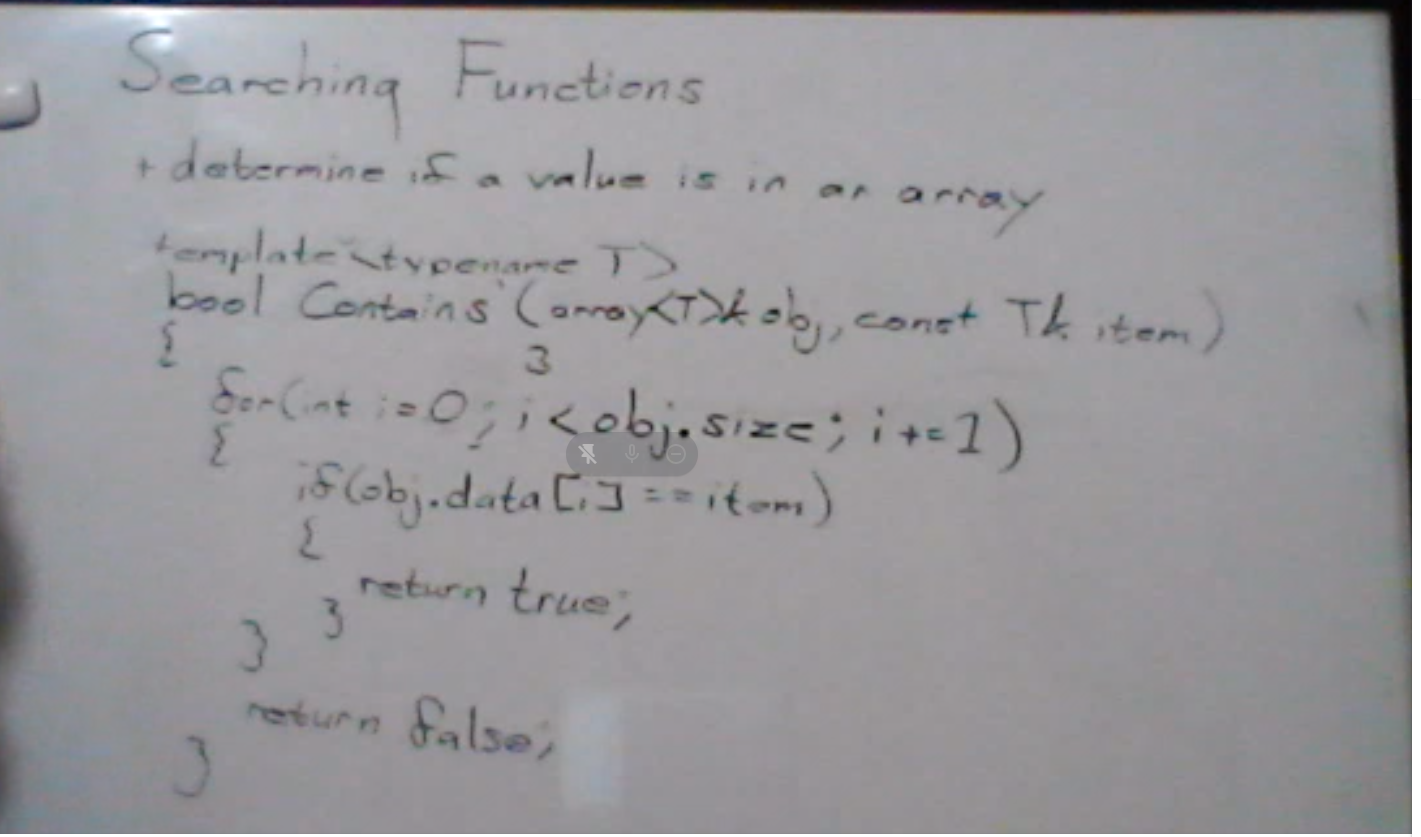 Searching Functions
+ determine if a value is in an array
template<typename T>
bool Contains(array<T>& obj, const T& item)
{
3
for(int i=0; i<obj.size; i+=1)
{
if(obj.data[i]==item)
{
return true;
}
}
return false;
}